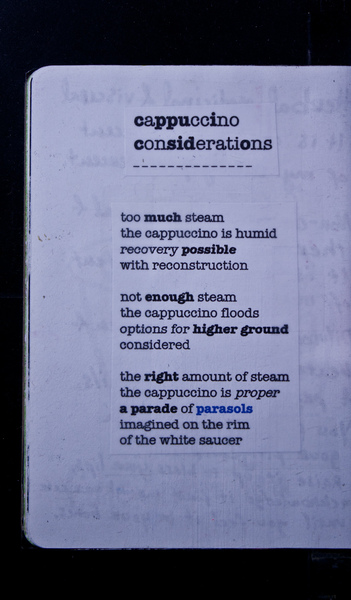 cappuccino
considerations
too much steam
the cappuccino is humid
recovery possible
with reconstruction
not enough steam
the cappuccino floods
options for higher ground
considered
the right amount of steam
the cappuccino is proper
a parade of parasols
imagined on the rim
of the white saucer